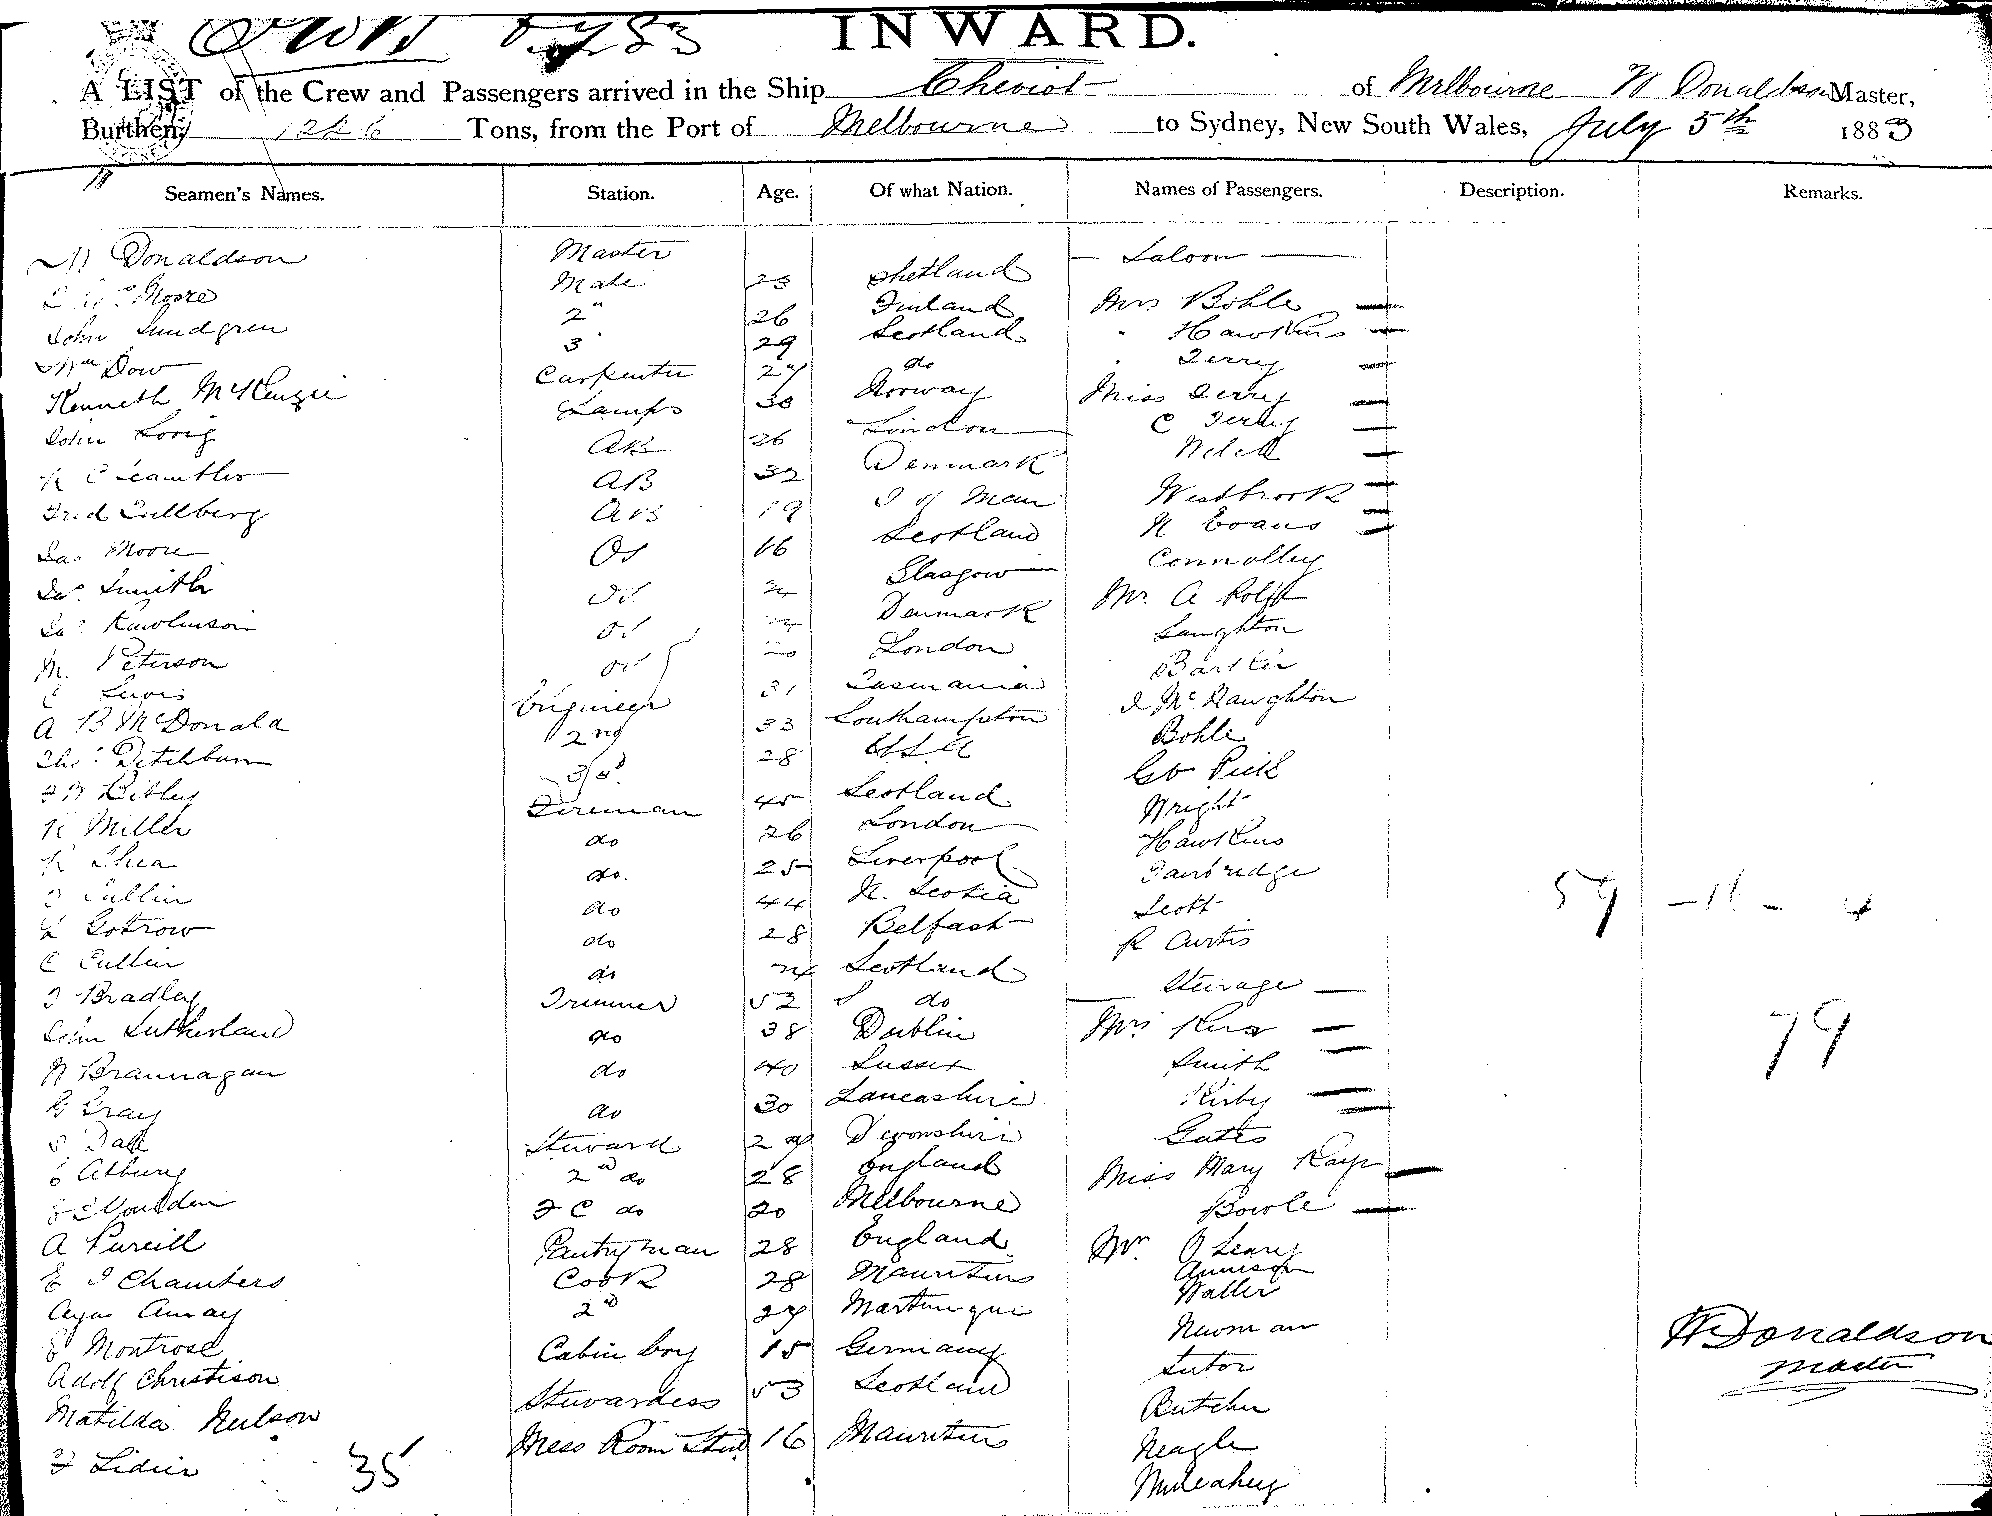 INWARD.
A LIST of the Crew and Passengers arrived in the Ship Cheviot of Melbourne W Donaldson Master,
Burthen, Tons, from the Port of Melbourne to Sydney, New South Wales, July 5th 1883
Seamen's Names. Station. Age. Of what Nation. Names of Passengers. Description. Remarks.
W Donaldson Master Saloon
Moore Mate 23 Shetland
John Lundgren 2 " 26 Finland Mrs Bohle
Wm Dow 3 " 29 Scotland " Hawkins
Kenneth McKenzie Carpenter 27 do " Terry
John Lamps 30 Norway Miss Terry
AB 26 London C Terry
Fred AB 32 Denmark Welch
Jas Moore AB 19 I of Man Westbrook
Jas Smith OS 16 Scotland N Evans
Jas Rawlinson OS Glasgow Connolley
M. Peterson OS Denmark Mr. A Rolfe
C Lewis OS London Langhton
A B McDonald Engineer 31 Tasmania
Thos Ditchburn 2nd 33 Southampton J McNaughton
3rd 28 U.S.A Bohle
R Miller Fireman 45 Scotland Geo Pick
R Shea do 26 London Wright
do. 25 Liverpool Hawkins
Gotrow do 44 N. Scotia
C Cullin do 28 Belfast Scott 59 - 11 - 4
J Bradley do 24 Scotland R Curtis
John Sutherland Trimmer 52 do Steerage
W Brannagan do 38 Dublin Mrs
G Gray do 40 Sussex Smith 79
do 30 Lancashire Kirby
Steward 29 Devonshire Gates
2nd do 28 England Miss Mary
A Purcill F C do 20 Melbourne Bowle
E J Chambers Pantryman 28 England Mr. O Leary
Cook 28 Mauritius Annison
E Montrose 2nd 27 Martinique Waller
Adolf Christison Cabin boy 15 Germany Newman
Matilda Neilson Stewardess 53 Scotland Tutor
Mess Room Stwd 16 Mauritius Butcher
Neagle
Mulcahey
35
W Donaldson
Master